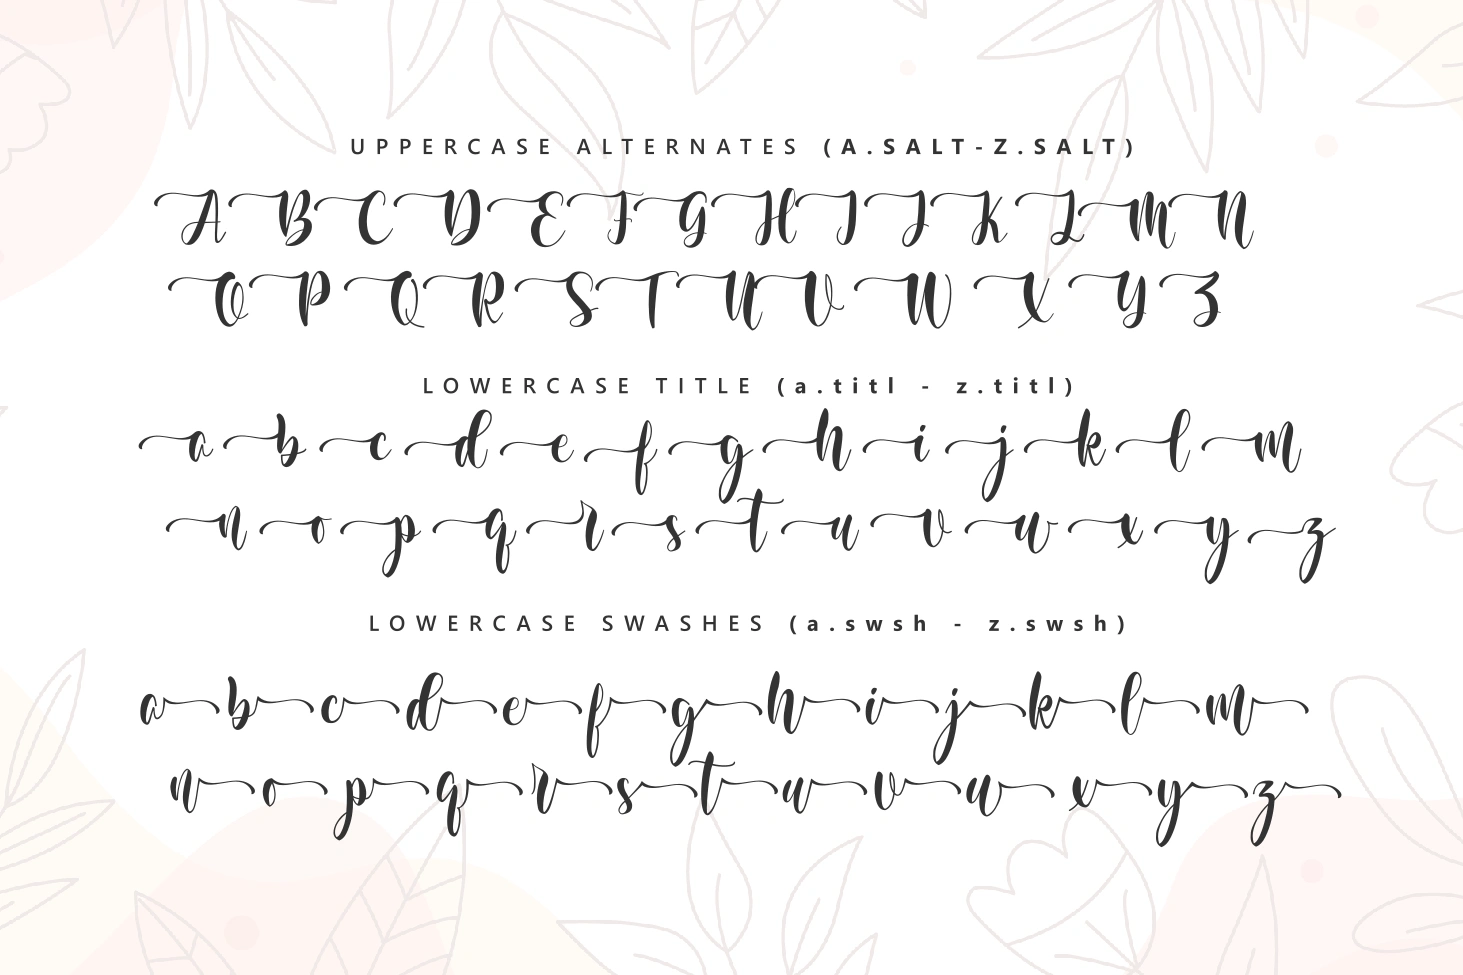 UPPERCASE ALTERNATES (A.SALT-Z.SALT)
A B C D E F G H I J K L M N
O P Q R S T U V W X Y Z
LOWERCASE TITLE (a.titl - z.titl)
a b c d e f g h i j k l m
n o p q r s t u v w x y z
LOWERCASE SWASHES (a.swsh - z.swsh)
a b c d e f g h i j k l m
n o p q r s t u v w x y z